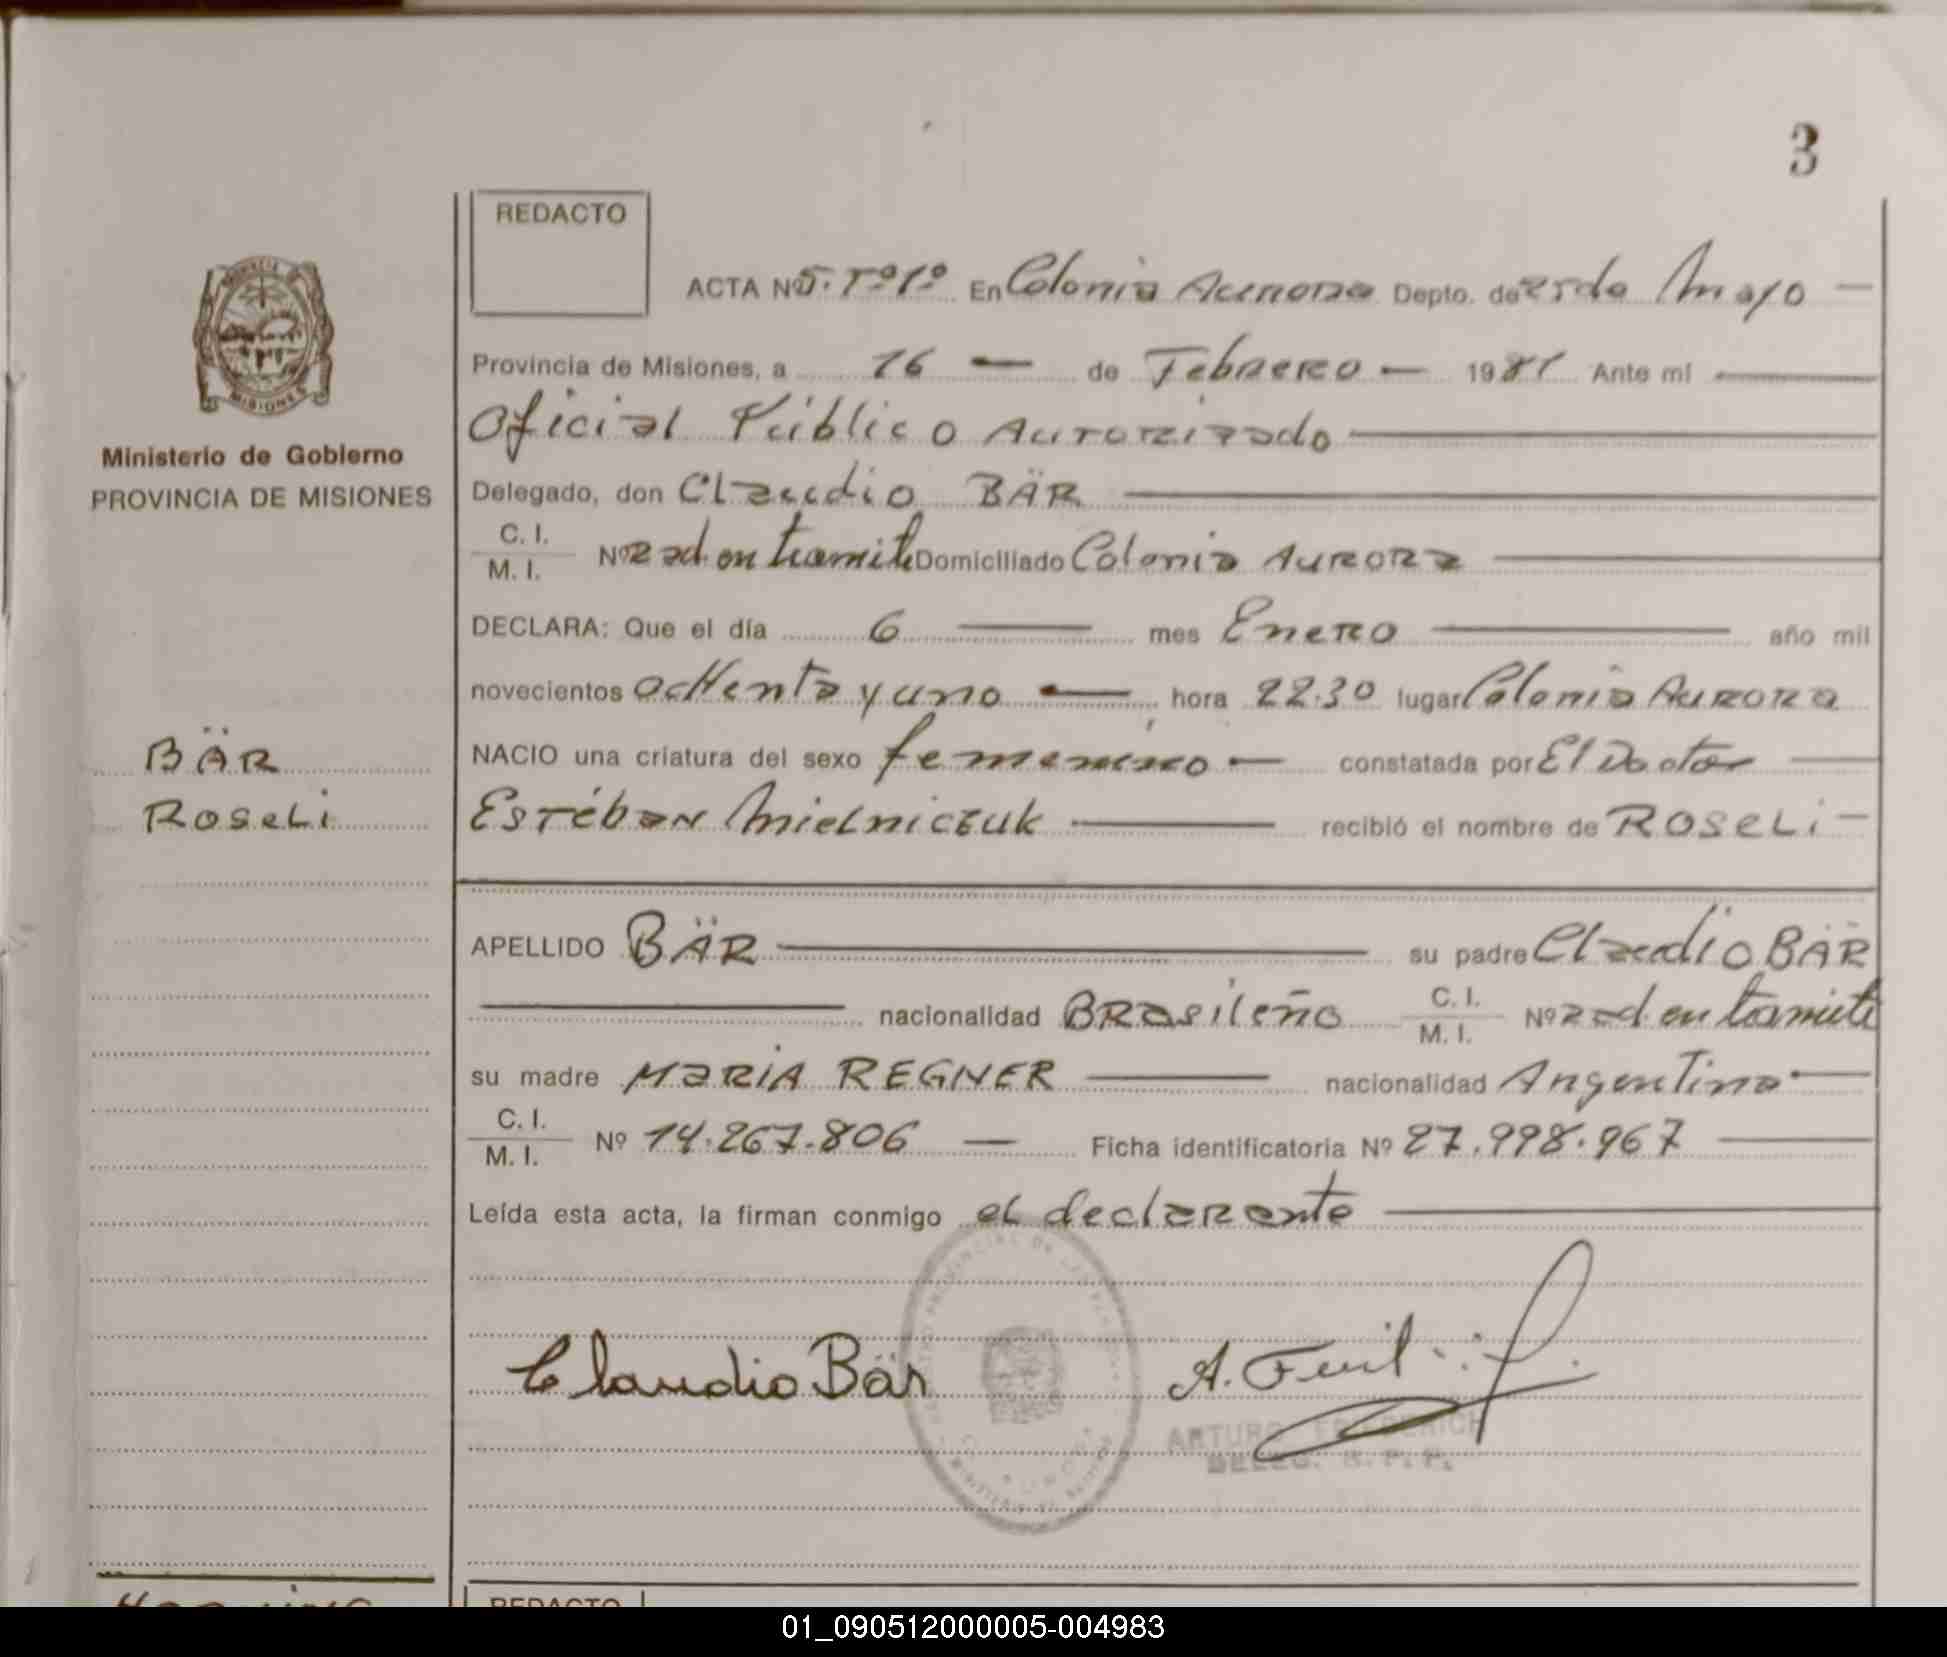 3
REDACTO
ACTA Nº 5. Tº 1º En Colonia Aurora Depto. de 25 de Mayo
Provincia de Misiones, a 16 de Febrero 1981 Ante mi
Oficial Público Autorizado
Ministerio de Gobierno
PROVINCIA DE MISIONES
Delegado, don Claudio BÄR
C. I.
M. I. Nº Rad. en tramite Domiciliado Colonia Aurora
DECLARA: Que el día 6 mes Enero año mil
novecientos ochenta y uno hora 22.30 lugar Colonia Aurora
BÄR
NACIO una criatura del sexo femenino constatada por El Doctor
Roseli
Estéban Mielniczuk recibió el nombre de ROSELi
APELLIDO BÄR su padre Claudio BÄR
nacionalidad Brasileño C. I.
M. I. Nº Rad en tramite
su madre MARIA REGNER nacionalidad Argentina
C. I.
M. I. Nº 14.267.806 Ficha identificatoria Nº 27.998.967
Leída esta acta, la firman conmigo el declarante
Claudio Bär
ARTURO FRIEDERICH
DELEG. R. P. P.
MISIONES
REDACTO
01_090512000005-004983